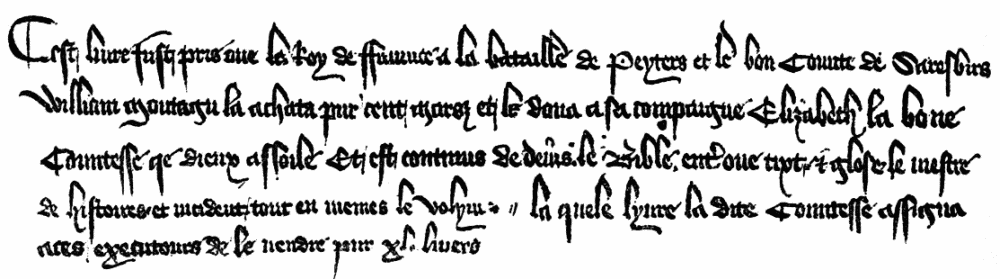 Cest livre fust pris oue le Roy de ffraunce a la bataille de Peyters et le bon Counte de Saresbirs
William Montagu la achata pur cent mars et le dona a sa compaigne Elizabeth la bone
Countesse qe dieux assoile Et est continus dedeins le Bible enter oue tixt et glose le mestre
de histoires et incident tout en memes le volym la quele lyure la dite Countesse assigna
a ces executours de le vendre pur xl livers